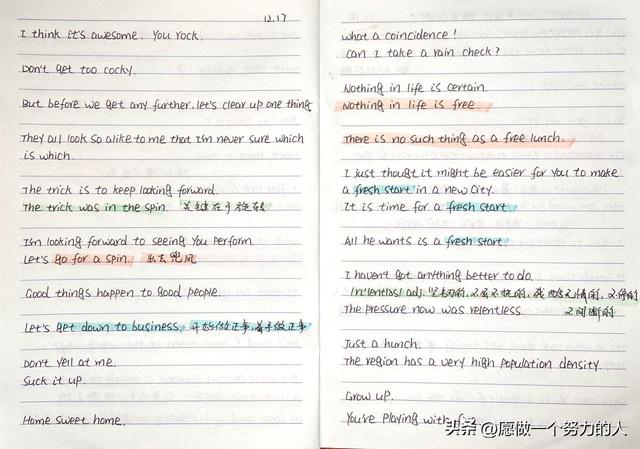 12.17
I think it's awesome. You rock.
Don't get too cocky.
But before we get any further, let's clear up one thing
They all look so alike to me that I'm never sure which
is which.
The trick is to keep looking forward.
The trick was in the spin. 关键在于旋转
I'm looking forward to seeing you perform.
Let's go for a spin. 出去兜风
Good things happen to good people.
Let's get down to business. 开始做正事,着手做正事
Don't yell at me.
Suck it up.
Home sweet home.
what a coincidence!
Can I take a rain check?
Nothing in life is certain.
Nothing in life is free.
There is no such thing as a free lunch.
I just thought it might be easier for you to make
a fresh start in a new city.
It is time for a fresh start.
All he wants is a fresh start.
I haven't got anything better to do.
adj. 坚韧的,不屈不挠的,
The pressure now was relentless. 不间断的
Just a hunch.
The region has a very high population density.
Grow up.
You're playing with
头条 @愿做一个努力的人